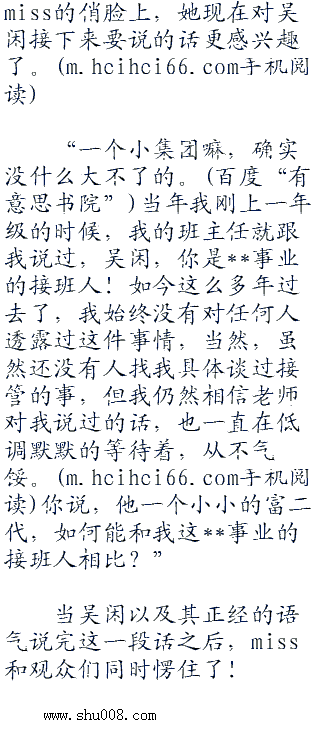 miss的俏脸上，她现在对吴
闲接下来要说的话更感兴趣
了。(m.hcihci66.com手机阅
读)
“一个小集团嘛，确实
没什么大不了的。(百度“有
意思书院”)当年我刚上一年
级的时候，我的班主任就跟
我说过，吴闲，你是**事业
的接班人！如今这么多年过
去了，我始终没有对任何人
透露过这件事情，当然，虽
然还没有人找我具体谈过接
管的事，但我仍然相信老师
对我说过的话，也一直在低
调默默的等待着，从不气
馁。(m.hcihci66.com手机阅
读)你说，他一个小小的富二
代，如何能和我这**事业的
接班人相比？”
当吴闲以及其正经的语
气说完这一段话之后，miss
和观众们同时愣住了！
www.shu008.com